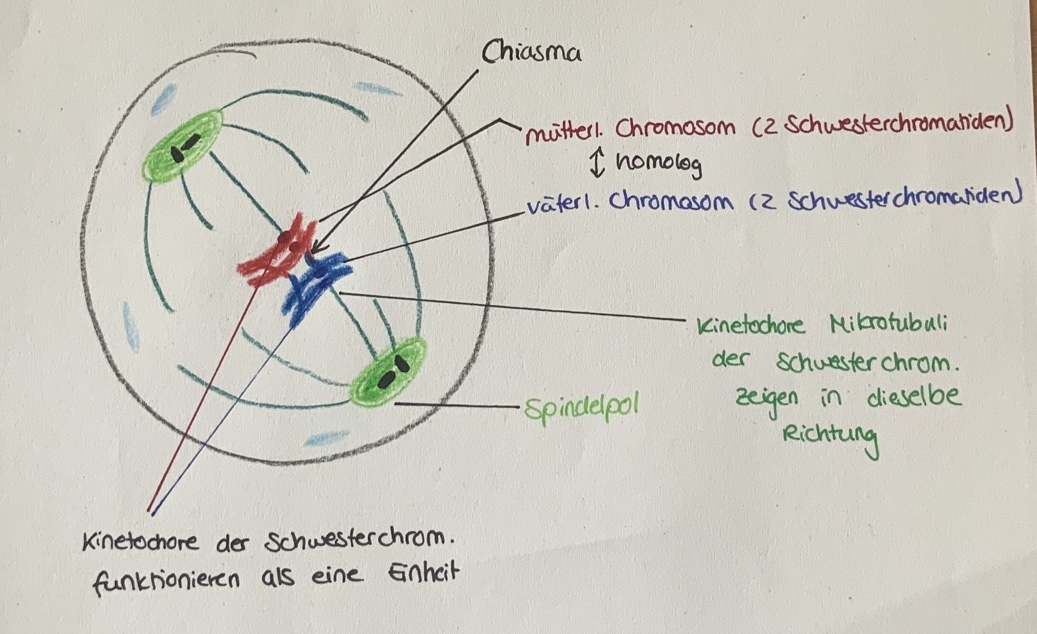 Chiasma
mütterl. Chromosom (2 Schwesterchromatiden)
↕ homolog
väterl. Chromosom (2 Schwesterchromatiden)
Kinetochore Mikrotubuli
der Schwesterchrom.
zeigen in dieselbe
Richtung
Spindelpol
Kinetochore der Schwesterchrom.
funktionieren als eine Einheit